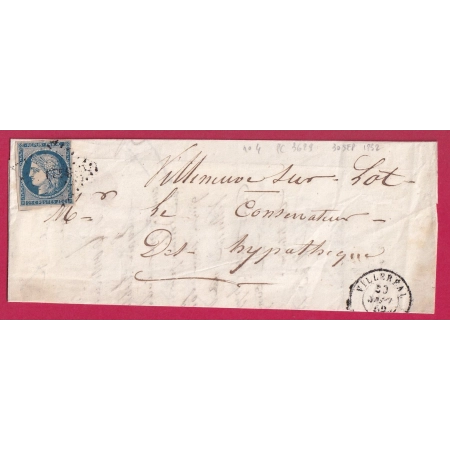 no 4 PC 3689 30 SEP 1852
Villeneuve sur-Lot-
Mr. le Conservateur-
Des- hypathèque
VILLEREAL
30
SEPT
52